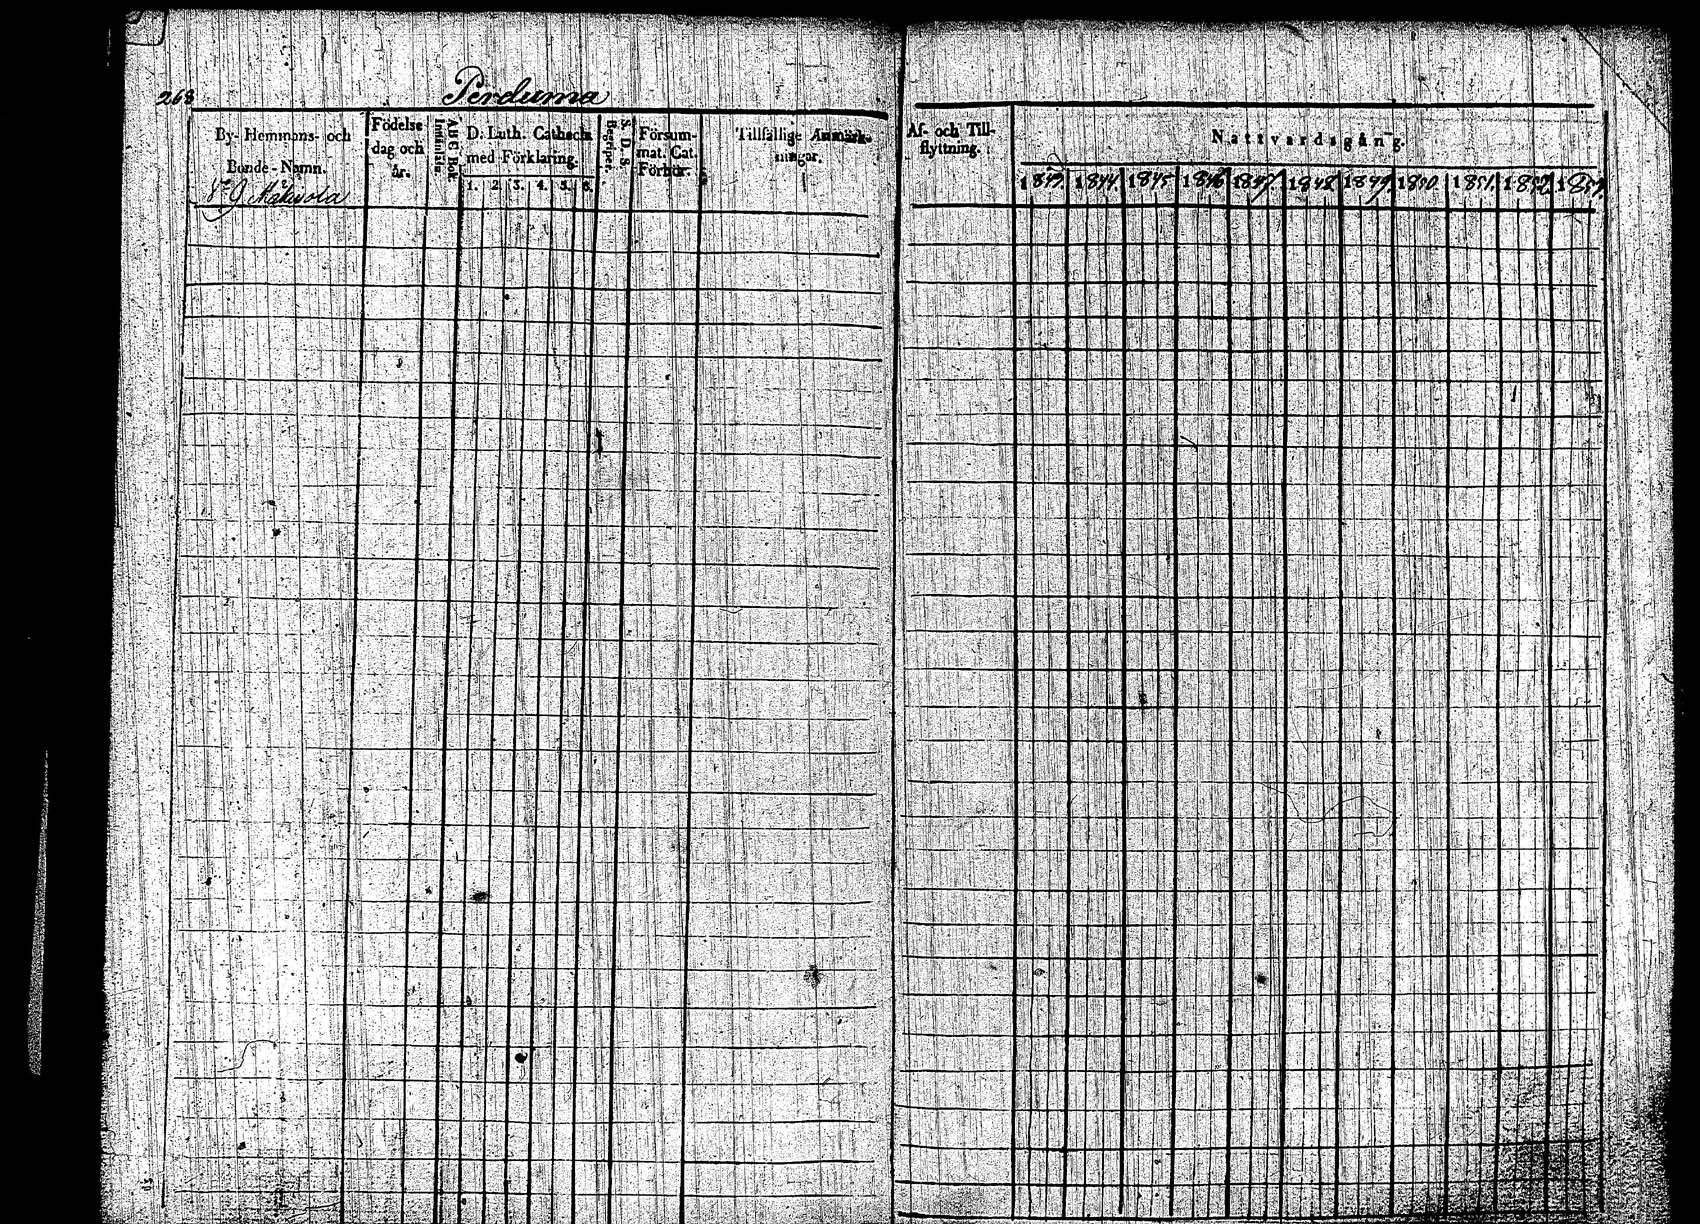 268
Perduma
By- Hemmans- och
Bonde-Namn.
Födelse
dag och
år.
A B C Bok.
Innanläs.
D. Luth. Catheches
med Förklaring.
1. 2. 3. 4. 5. 6.
S. D. S.
Begriper.
Försum-
mat. Cat.
Förhör.
Tillfällige Anmärk-
ningar.
Af- och Till-
flyttning.
Nattvardsgång.
1843. 1844. 1845 1846 1847 1848 1849. 1850 1851. 1852 1853.